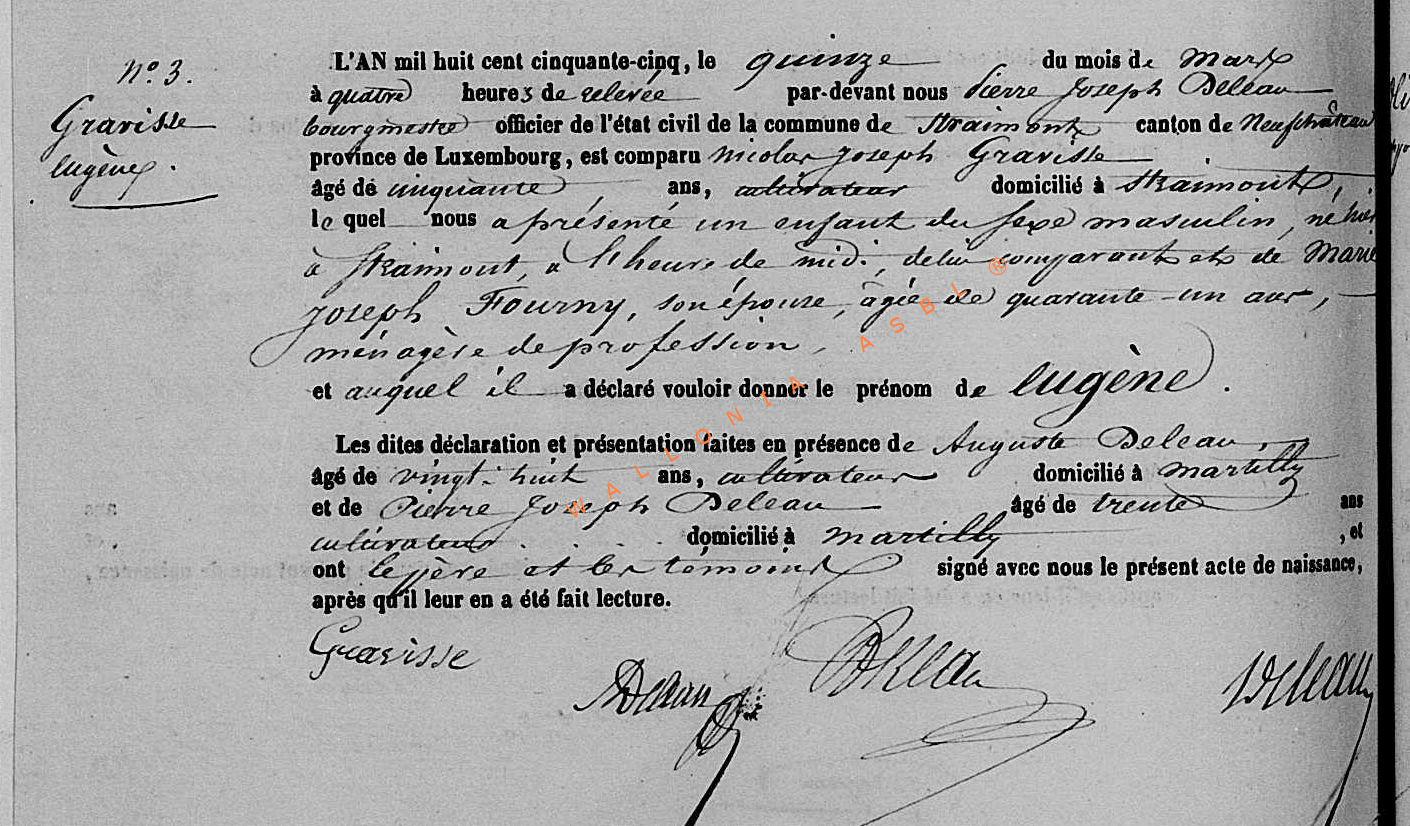 N° 3.
Gravisse
Eugène.
L'AN mil huit cent cinquante-cinq, le quinze du mois de Mars
à quatre heures de relevée par-devant nous Pierre Joseph Deleau
bourgmestre officier de l'état civil de la commune de Straimont canton de Neufchâteau
province de Luxembourg, est comparu Nicolas Joseph Gravisse
âgé de cinquante ans, cultivateur domicilié à Straimont,
le quel nous a présenté un enfant du sexe masculin, né hier
à Straimont, à l'heure de midi, de lui comparant et de Marie
Joseph Fourny, son épouse, âgée de quarante-un ans,
ménagère de profession,
et auquel il a déclaré vouloir donner le prénom de Eugène.
Les dites déclaration et présentation faites en présence de Auguste Deleau,
âgé de vingt-huit ans, cultivateur domicilié à Martilly
et de Pierre Joseph Deleau âgé de trente ans
cultivateur domicilié à Martilly, et
ont le père et les témoins signé avec nous le présent acte de naissance,
après qu'il leur en a été fait lecture.
Gravisse
ADeleau Deleau Deleau
WALLONIA ASBL ®